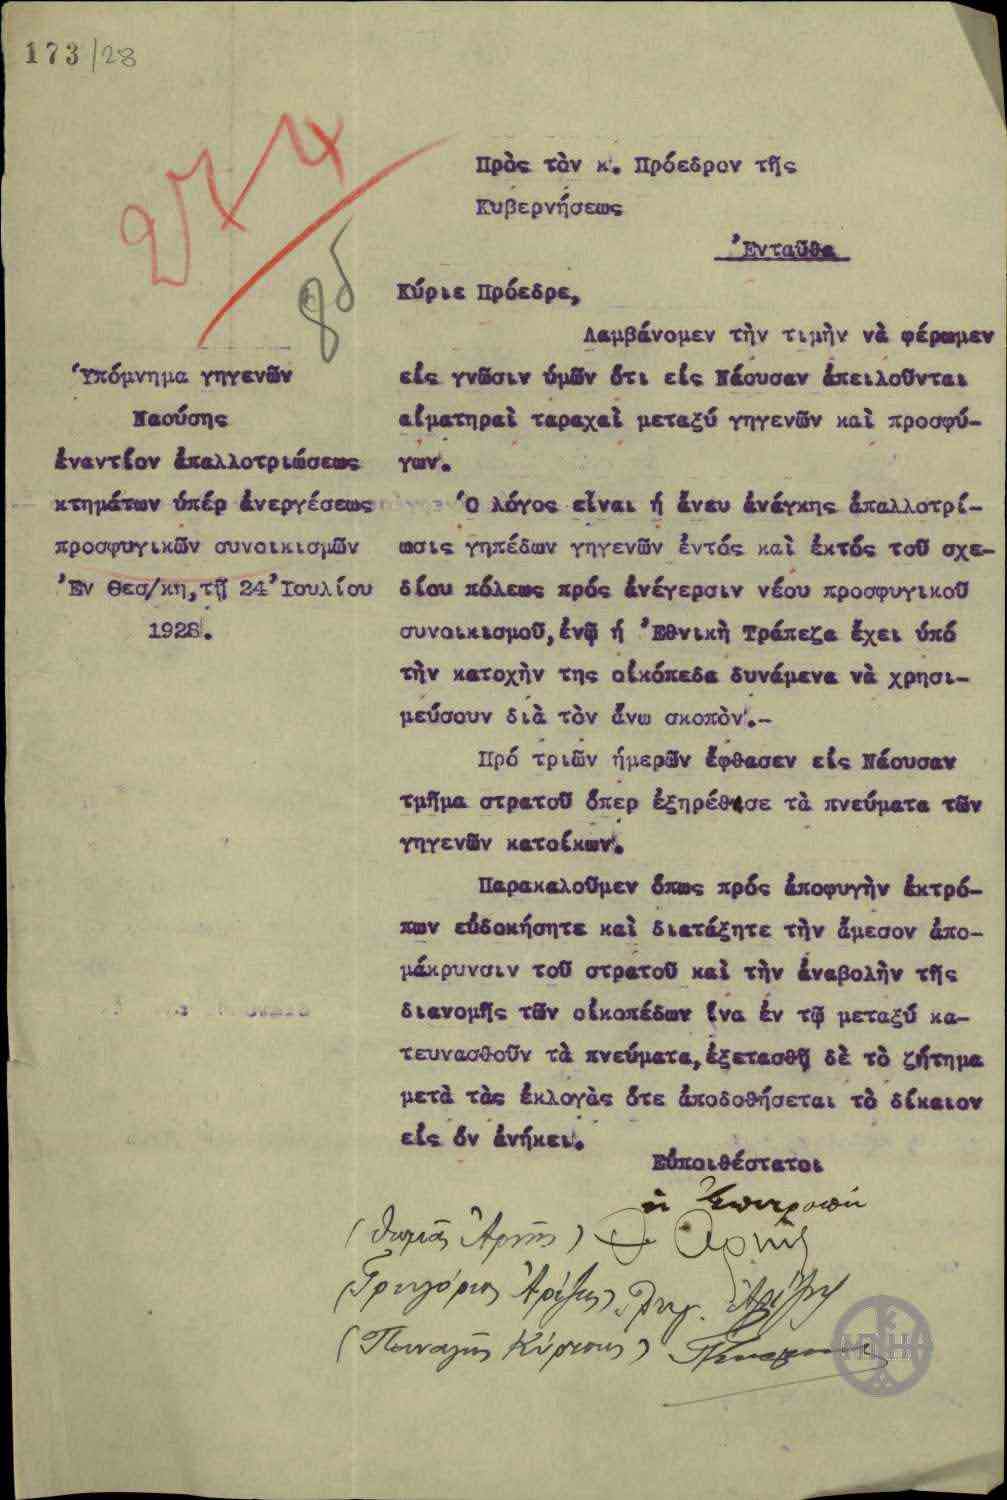 173/28
274
Πρὸς τὸν κ. Πρόεδρον τῆς
Κυβερνήσεως
Ἐνταῦθα
Κύριε Πρόεδρε,
Ὑπόμνημα γηγενῶν
Ναούσης
ἐναντίον ἀπαλλοτριώσεως
κτημάτων ὑπέρ ἀνεργέσεως
προσφυγικῶν συνοικισμῶν
Ἐν Θεσ/κη, τῇ 24 Ἰουλίου
1928.
Λαμβάνομεν τὴν τιμὴν νὰ φέρωμεν
εἰς γνῶσιν ὑμῶν ὅτι εἰς Νάουσαν ἀπειλοῦνται
αἱματηραὶ ταραχαὶ μεταξύ γηγενῶν καὶ προσφύ-
γων.
Ὁ λόγος εἶναι ἡ ἄνευ ἀνάγκης ἀπαλλοτρί-
ωσις γηπέδων γηγενῶν ἐντός καὶ ἐκτός τοῦ σχε-
δίου πόλεως πρός ἀνέγερσιν νέου προσφυγικοῦ
συνοικισμοῦ, ἐνῷ ἡ Ἐθνικὴ Τράπεζα ἔχει ὑπό
τὴν κατοχὴν της οἰκόπεδα δυνάμενα νὰ χρησι-
μεύσουν διὰ τὸν ἄνω σκοπὸν.-
Πρό τριῶν ἡμερῶν ἔφθασεν εἰς Νάουσαν
τμῆμα στρατοῦ ὅπερ ἐξηρέθισε τὰ πνεύματα τῶν
γηγενῶν κατοίκων.
Παρακαλοῦμεν ὅπως πρός ἀποφυγὴν ἐκτρό-
πων εὐδοκήσητε καὶ διατάξητε τὴν ἄμεσον ἀπο-
μάκρυνσιν τοῦ στρατοῦ καὶ τὴν ἀναβολὴν τῆς
διανομῆς τῶν οἰκοπέδων ἵνα ἐν τῷ μεταξύ κα-
τευνασθοῦν τὰ πνεύματα, ἐξετασθῇ δὲ τὸ ζήτημα
μετὰ τὰς ἐκλογὰς ὅτε ἀποδοθήσεται τὸ δίκαιον
εἰς ὅν ἀνήκει.
Εὐπειθέστατοι
ἡ Ἐπιτροπή
(Θωμᾶς Ἀρνῆς)
(Γρηγόριος
(Παναγῆς
ΕΜΠΗ